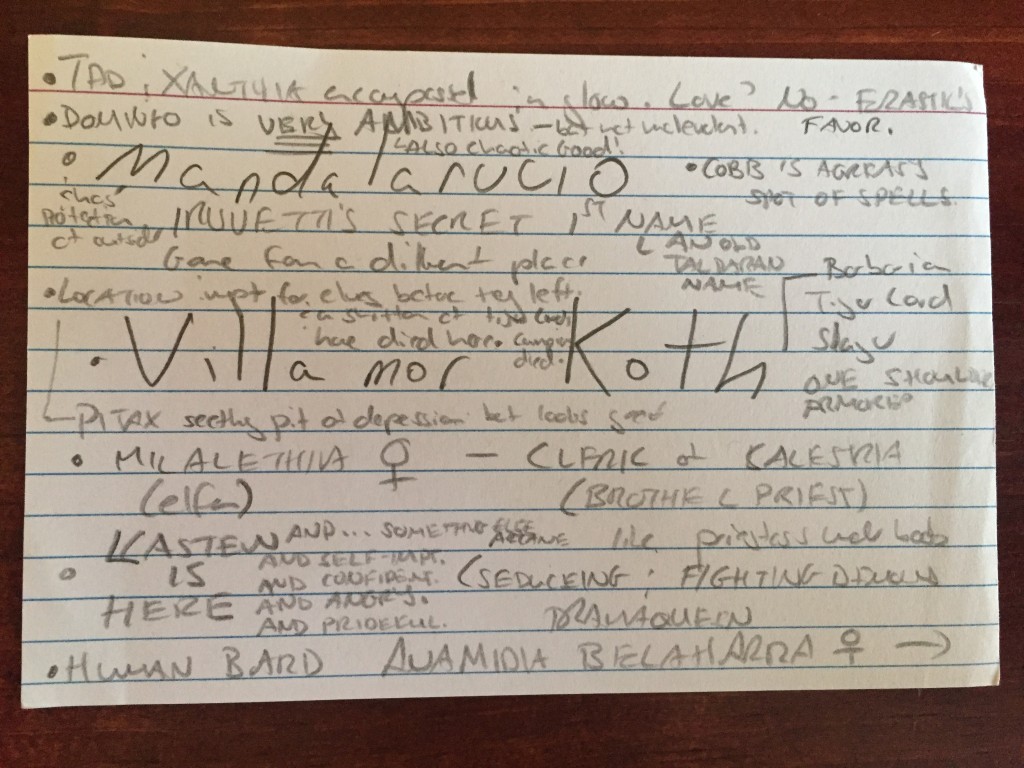 • TAD ; XALTHIA encompassed in glow. Love? NO - ERASTIL'S FAVOR.
• DOMINFO IS VERY AMBITIOUS - but not malevolent.
ALSO Chaotic Good!
Mandalarucio
• COBB IS AGREAT'S
SPOT OF SPELLS.
IRUVETTI'S SECRET 1ST NAME
AN OLD
TALDARAN
NAME
Came from a different place
• LOCATION impt for elves before they left.
have died here.
died.
• Villamor Koth
Barbarian
Tiger Lord
Slayer
ONE SHOULDER
ARMORED
PITAX seething pit of depression but looks good
• MILALETHIA ♀ - CLERIC of CALESTRIA
(elfen) (BROTHEL PRIEST)
like priestess
KASTEN IS HERE
AND... SOMETHING ELSE
ARCANE
AND SELF-IMPT.
AND CONFIDENT.
AND ANGRY.
AND PRIDEFUL.
(SEDUCEING ; FIGHTING DEMONS
DRAMAQUEEN
• HUMAN BARD ANAMIDIA BELAHARRA ♀ →